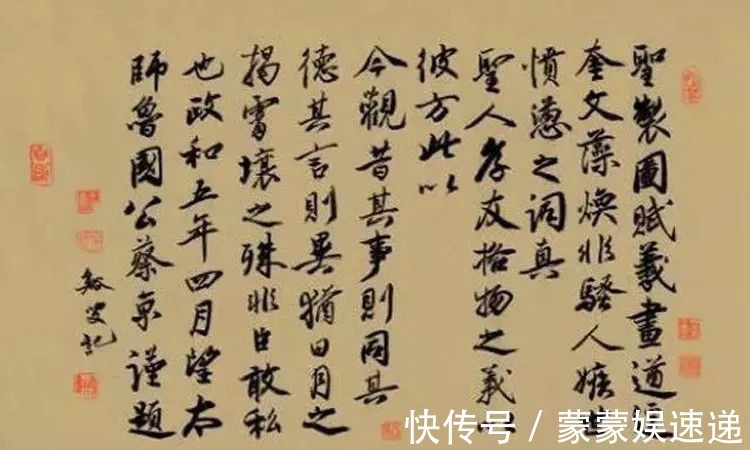 聖製圖賦義畫道
奎文藻煥非騷人嫉
憤懣之詞真
聖人孝友格物之義以
彼方此以
今觀昔其事則同其
德其言則異猶日月之
揭霄壤之殊非臣敢私
也政和五年四月望太
師魯國公蔡京謹題
叟記
快传号 / 蒙蒙娱速递